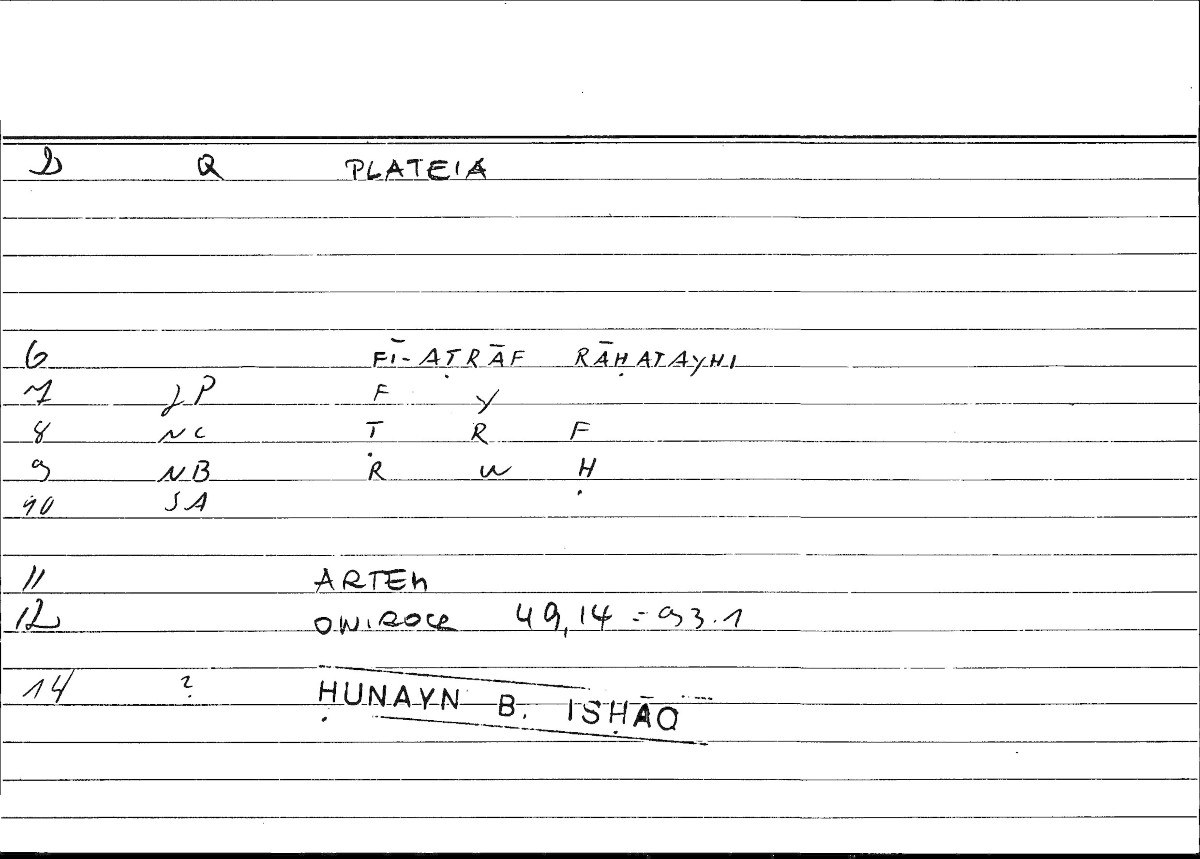 Q PLATEIA
6 FĪ-AṬRĀF RĀḤATAYHI
7 LP F Y
8 NC Ṭ R F
9 NB R W Ḥ
10 SA
11 ARTEM
12 ONIROCR 49,14 = 93.1
14 ? ḤUNAYN B. ISḤĀQ